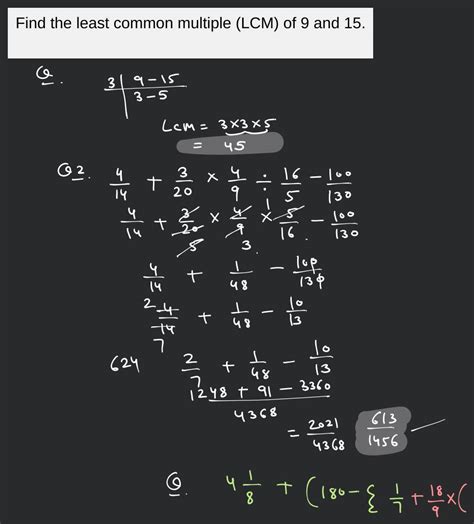 Find the least common multiple (LCM) of 9 and 15.
Q.
3 | 9 - 15
3 - 5
Lcm = 3x3x5
= 45
Q2. 4/14 + 3/20 × 4/9 ÷ 16/5 - 100/130
4/14 + 3/20 × 4/9 × 5/16 - 100/130
5 3 1
4/14 + 1/48 - 100/130
2 4/14 7 + 1/48 - 10/13
624 2/7 + 1/48 - 10/13
1248 + 91 - 3360
4368
= 2021/4368 613/1456
Q. 4 1/8 + (180 - { 1/7 + 18/9 x (